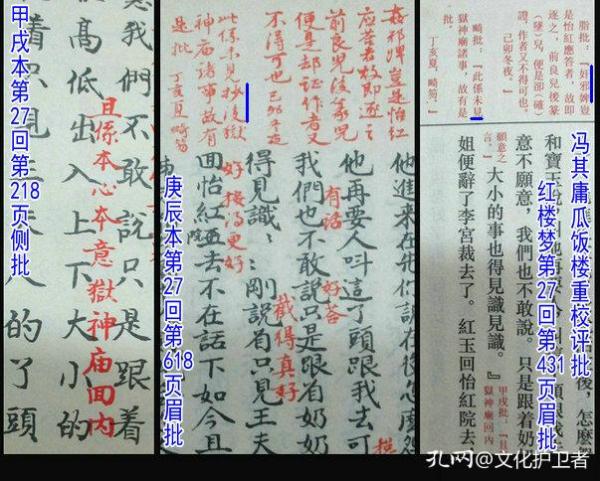 甲戌本第27回第218页侧批
我們不敢說只是跟着
且係本心本意獄神庙回内
高低出入上下大小的
庚辰本第27回第618页眉批
姦邪婢豈是怡红
应答者故即逐之
前良児後篆児
便是却証作者又
不得可也 己夘冬夜
此係未見抄后獄
神庙诸事故有
是批 丁亥夏畸笏
他進来在先你說在後怎庅
他再要人呌這丫頭跟我去可
有话
好答
我們也不敢說只是跟着奶奶
截得真好
得見識：剛說有只見王夫
好接得更好
囬怡紅院去不在話下如今且
冯其庸瓜饭楼重校评批
红楼梦第27回第431页眉批
脂批：「奸邪婢豈
是怡紅應答者，故即
逐之，前良兒後篆
（墜）兒，便是卻（確）
證，作者又不得可也。
己卯冬夜。
畸批：「此係未見
獄神廟諸事，故有是
批。丁亥夏，畸笏。」
和寶玉
意不願意，我們也不敢說。只是跟着奶
大小的事也得見識見識。』
甲戌批：「且
獄神廟回內
姐便辭了李宮裁去了。紅玉回怡紅院去
孔网@文化护卫者